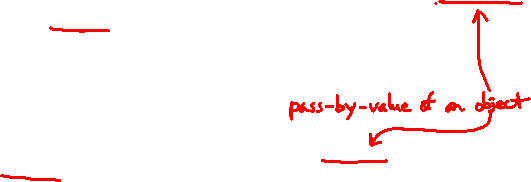 pass-by-value of an object